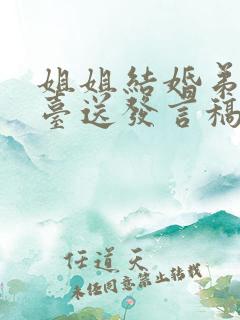 姐姐結婚弟
臺送發言稿
任道天
未经同意禁止转载